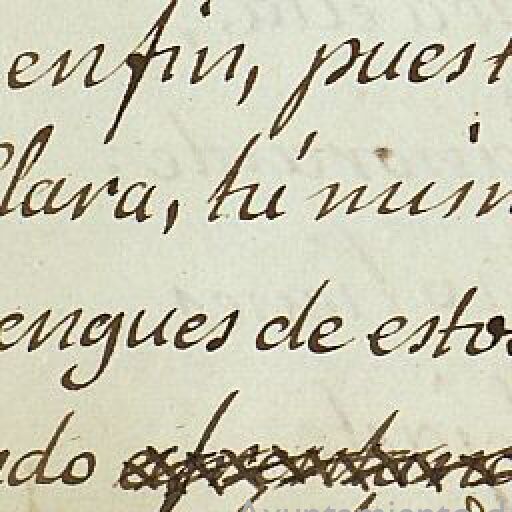 enfin, puest
lara, tú mism
engues de estos
do
Ayuntamiento d